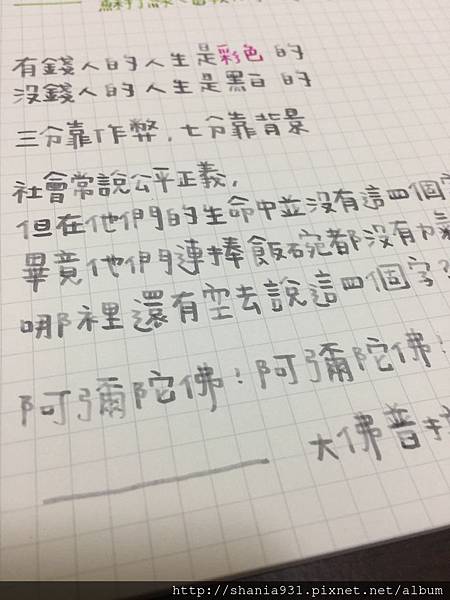 有錢人的人生是彩色的
沒錢人的人生是黑白的
三分靠作弊,七分靠背景
社會常說公平正義,
但在他們的生命中並沒有這四個字
畢竟他們連捧飯碗都沒有
哪裡還有空去說這四個字?
阿彌陀佛!阿彌陀佛!
大佛普拉
http://shania931.pixnet.net/album